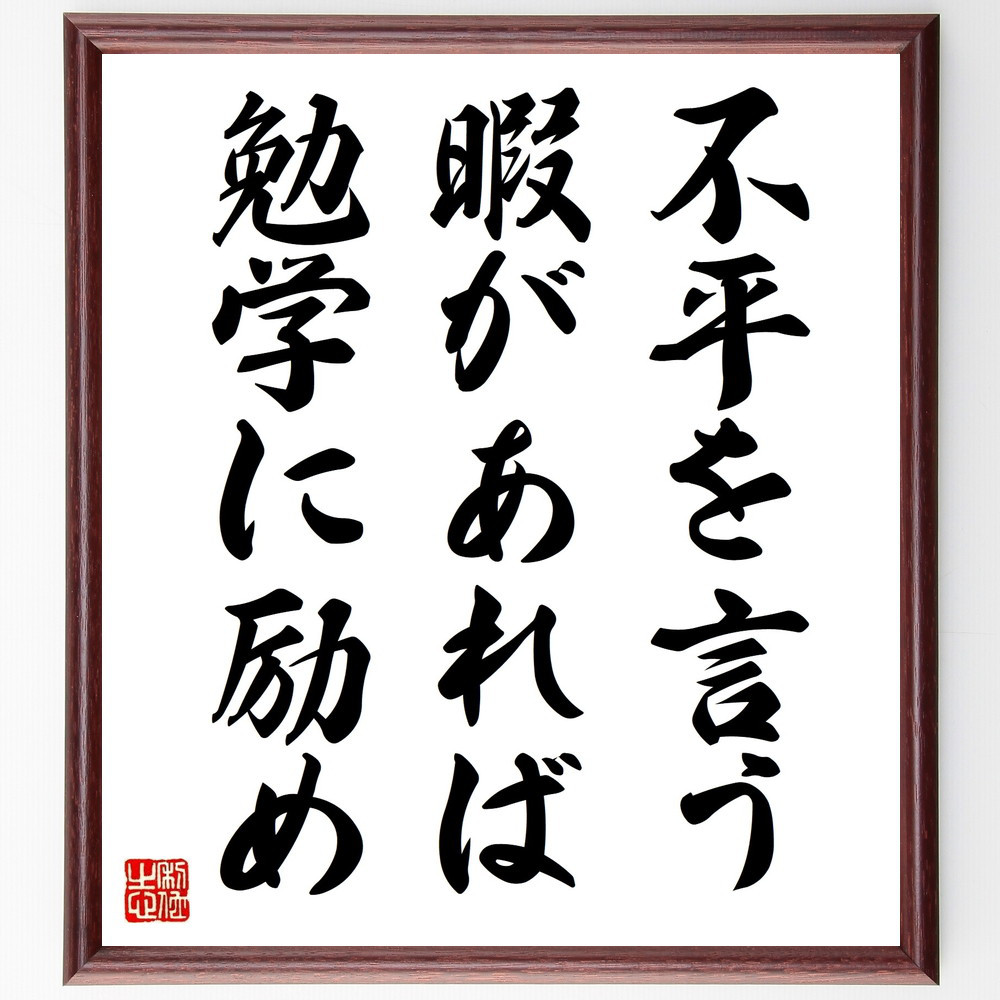 不平を言う
暇があれば
勉学に励め